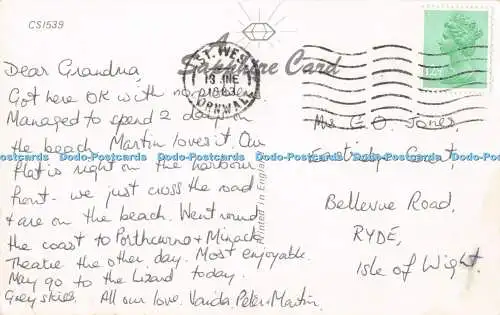 CS1539
A
Sapphire Card
ST. WES
13 JNE
1983
CORNWALL
12½P
Dear Grandma,
Got here OK with no problems.
Managed to spend 2 days on
the beach. Martin loves it. Our
flat is right on the harbour
front - we just cross the road
+ are on the beach. Went round
the coast to Porthcurno + Minack
Theatre the other day. Most enjoyable.
May go to the Lizard today.
Grey skies. All our love. Vanda, Peter + Martin.
Printed in England
Mrs E. O. Jones,
Court,
Bellevue Road,
RYDE,
Isle of Wight.
Dodo-Postcards Dodo-Postcards Dodo-Postcards Dodo-Postcards Dodo-Postcards Dodo-Postcards